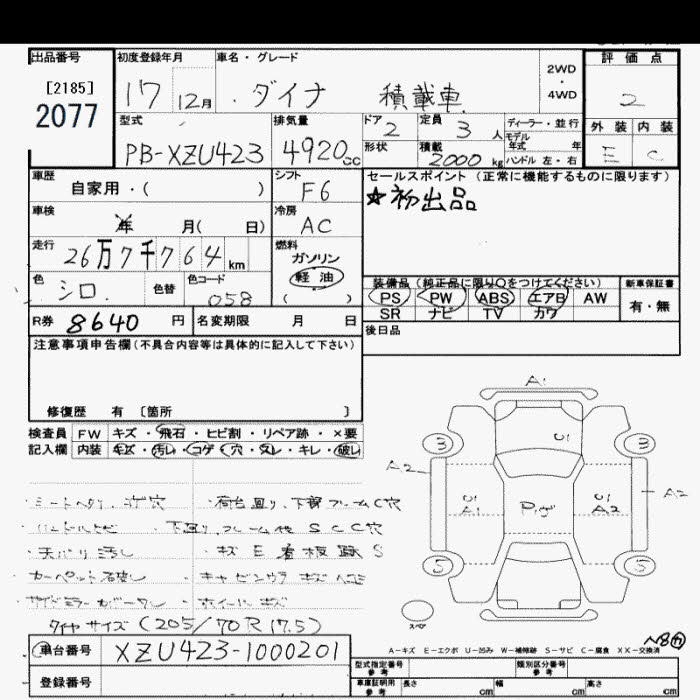 出品番号 初度登録年月 車名・グレード 2WD・4WD 評価点
[2185]
2077
17 12月 ダイナ 積載車 2
型式 排気量 ドア 2 定員 3人 ディーラー・並行 外装 内装
モデル年式 年
PB-XZU423 4920cc 形状 積載 2000kg ハンドル 左・右 E C
車歴 シフト セールスポイント(正常に機能するものに限ります)
自家用・( ) F6 ☆初出品
車検 年 月( 日) 冷房 AC
走行 26万7千764km 燃料
ガソリン
軽油
( )
色 シロ 色替 色コード 058
装備品(純正品に限り○をつけてください) 新車保証書
PS PW ABS エアB AW 有・無
SR ナビ TV カワ
R券 8640円 名変期限 月 日 後日品
注意事項申告欄(不具合内容等は具体的に記入して下さい)
修復歴 有 [箇所 ]
検査員 FW キズ・飛石・ヒビ割・リペア跡・×要
記入欄 内装 キズ・汚レ・コゲ・穴・スレ・キレ・破レ
A1
U1
3 3
A2 U1 A1 U1 A2 A2
5 5
・シートヘタリ、コゲ穴 ・荷台廻り、下部フレームC穴
・下廻り、フレーム他 SCC穴
・天バリ汚レ ・キズE看板跡S
・カーペット破レ ・キャビンウラ キズヘコミ
・ホイールキズ
タイヤサイズ(205/70R17.5)
スペア
A-キズ E-エクボ U-凹み W-補修跡 S-サビ C-腐食 XX-交換済
車台番号 XZU423-1000201
登録番号
型式指定番号 参考 類別区分番号 参考
車庫証明用 参考 長さ cm 幅 cm 高さ cm